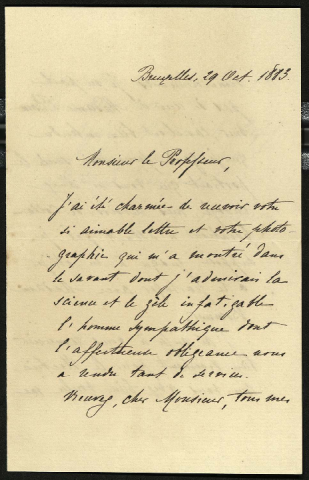 Bruxelles, 29 Oct. 1883.
Monsieur le Professeur,
J'ai été charmée de recevoir votre
si aimable lettre et votre photo-
graphie qui m'a montré dans
le savant dont j'admirais la
science et le zèle infatigable
l'homme sympathique dont
l'affectueuse obligeance nous
a rendu tant de services.
Recevez, cher Monsieur, tous mes